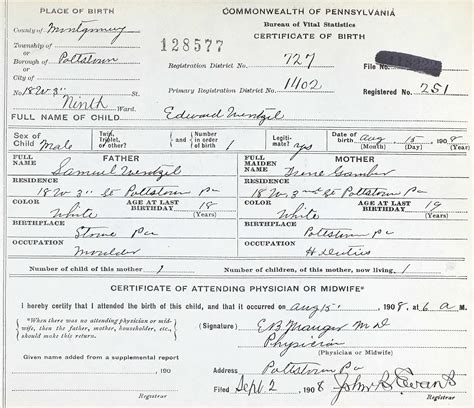 PLACE OF BIRTH
COMMONWEALTH OF PENNSYLVANIA
Bureau of Vital Statistics
CERTIFICATE OF BIRTH
County of Montgomery
Township of
or
Borough of Pottstown
or
City of
128577
Registration District No. 727
File No.
Primary Registration District No. 1402
Registered No. 251
No. 18 W 3"
Ninth Ward.
FULL NAME OF CHILD Edward Wentzel
Sex of Child Male
Twin, Triplet, or other?
and
Number in order of birth 1
Legitimate? yes
Date of birth Aug 15 1908
(Month) (Day) (Year)
FATHER
FULL NAME Samuel Wentzel
MOTHER
FULL MAIDEN NAME Irene
RESIDENCE 18 W 3" St Pottstown Pa
RESIDENCE 18 W. 3rd St Pottstown Pa
COLOR White
AGE AT LAST BIRTHDAY 18 (Years)
COLOR White
AGE AT LAST BIRTHDAY 19 (Years)
BIRTHPLACE Stowe Pa
BIRTHPLACE Pottstown Pa
OCCUPATION Moulder
OCCUPATION H Duties
Number of child of this mother 1
Number of children, of this mother, now living 1
CERTIFICATE OF ATTENDING PHYSICIAN OR MIDWIFE*
I hereby certify that I attended the birth of this child, and that it occurred on Aug 15 1908, at 6 a M.
*When there was no attending physician or midwife, then the father, mother, householder, etc., should make this return.
(Signature) M D
Physician
(Physician or Midwife)
Given name added from a supplemental report
190
Pottstown Pa
Filed Sept 2 1908 John Evans
Registrar
Registrar